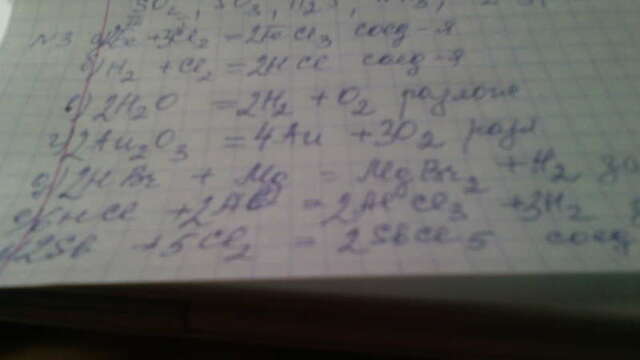 SO₂, SO₃, H₂S,
№3 а) 2Fe + 3Cl₂ = 2FeCl₃ соед-я
б) H₂ + Cl₂ = 2HCl соед-я
в) 2H₂O = 2H₂ + O₂ разлож
г) 2Au₂O₃ = 4Au + 3O₂ разл
д) 2HBr + Mg = MgBr₂ + H₂ за
е) 6HCl + 2Al = 2AlCl₃ + 3H₂
2Sb + 5Cl₂ = 2SbCl5 соед